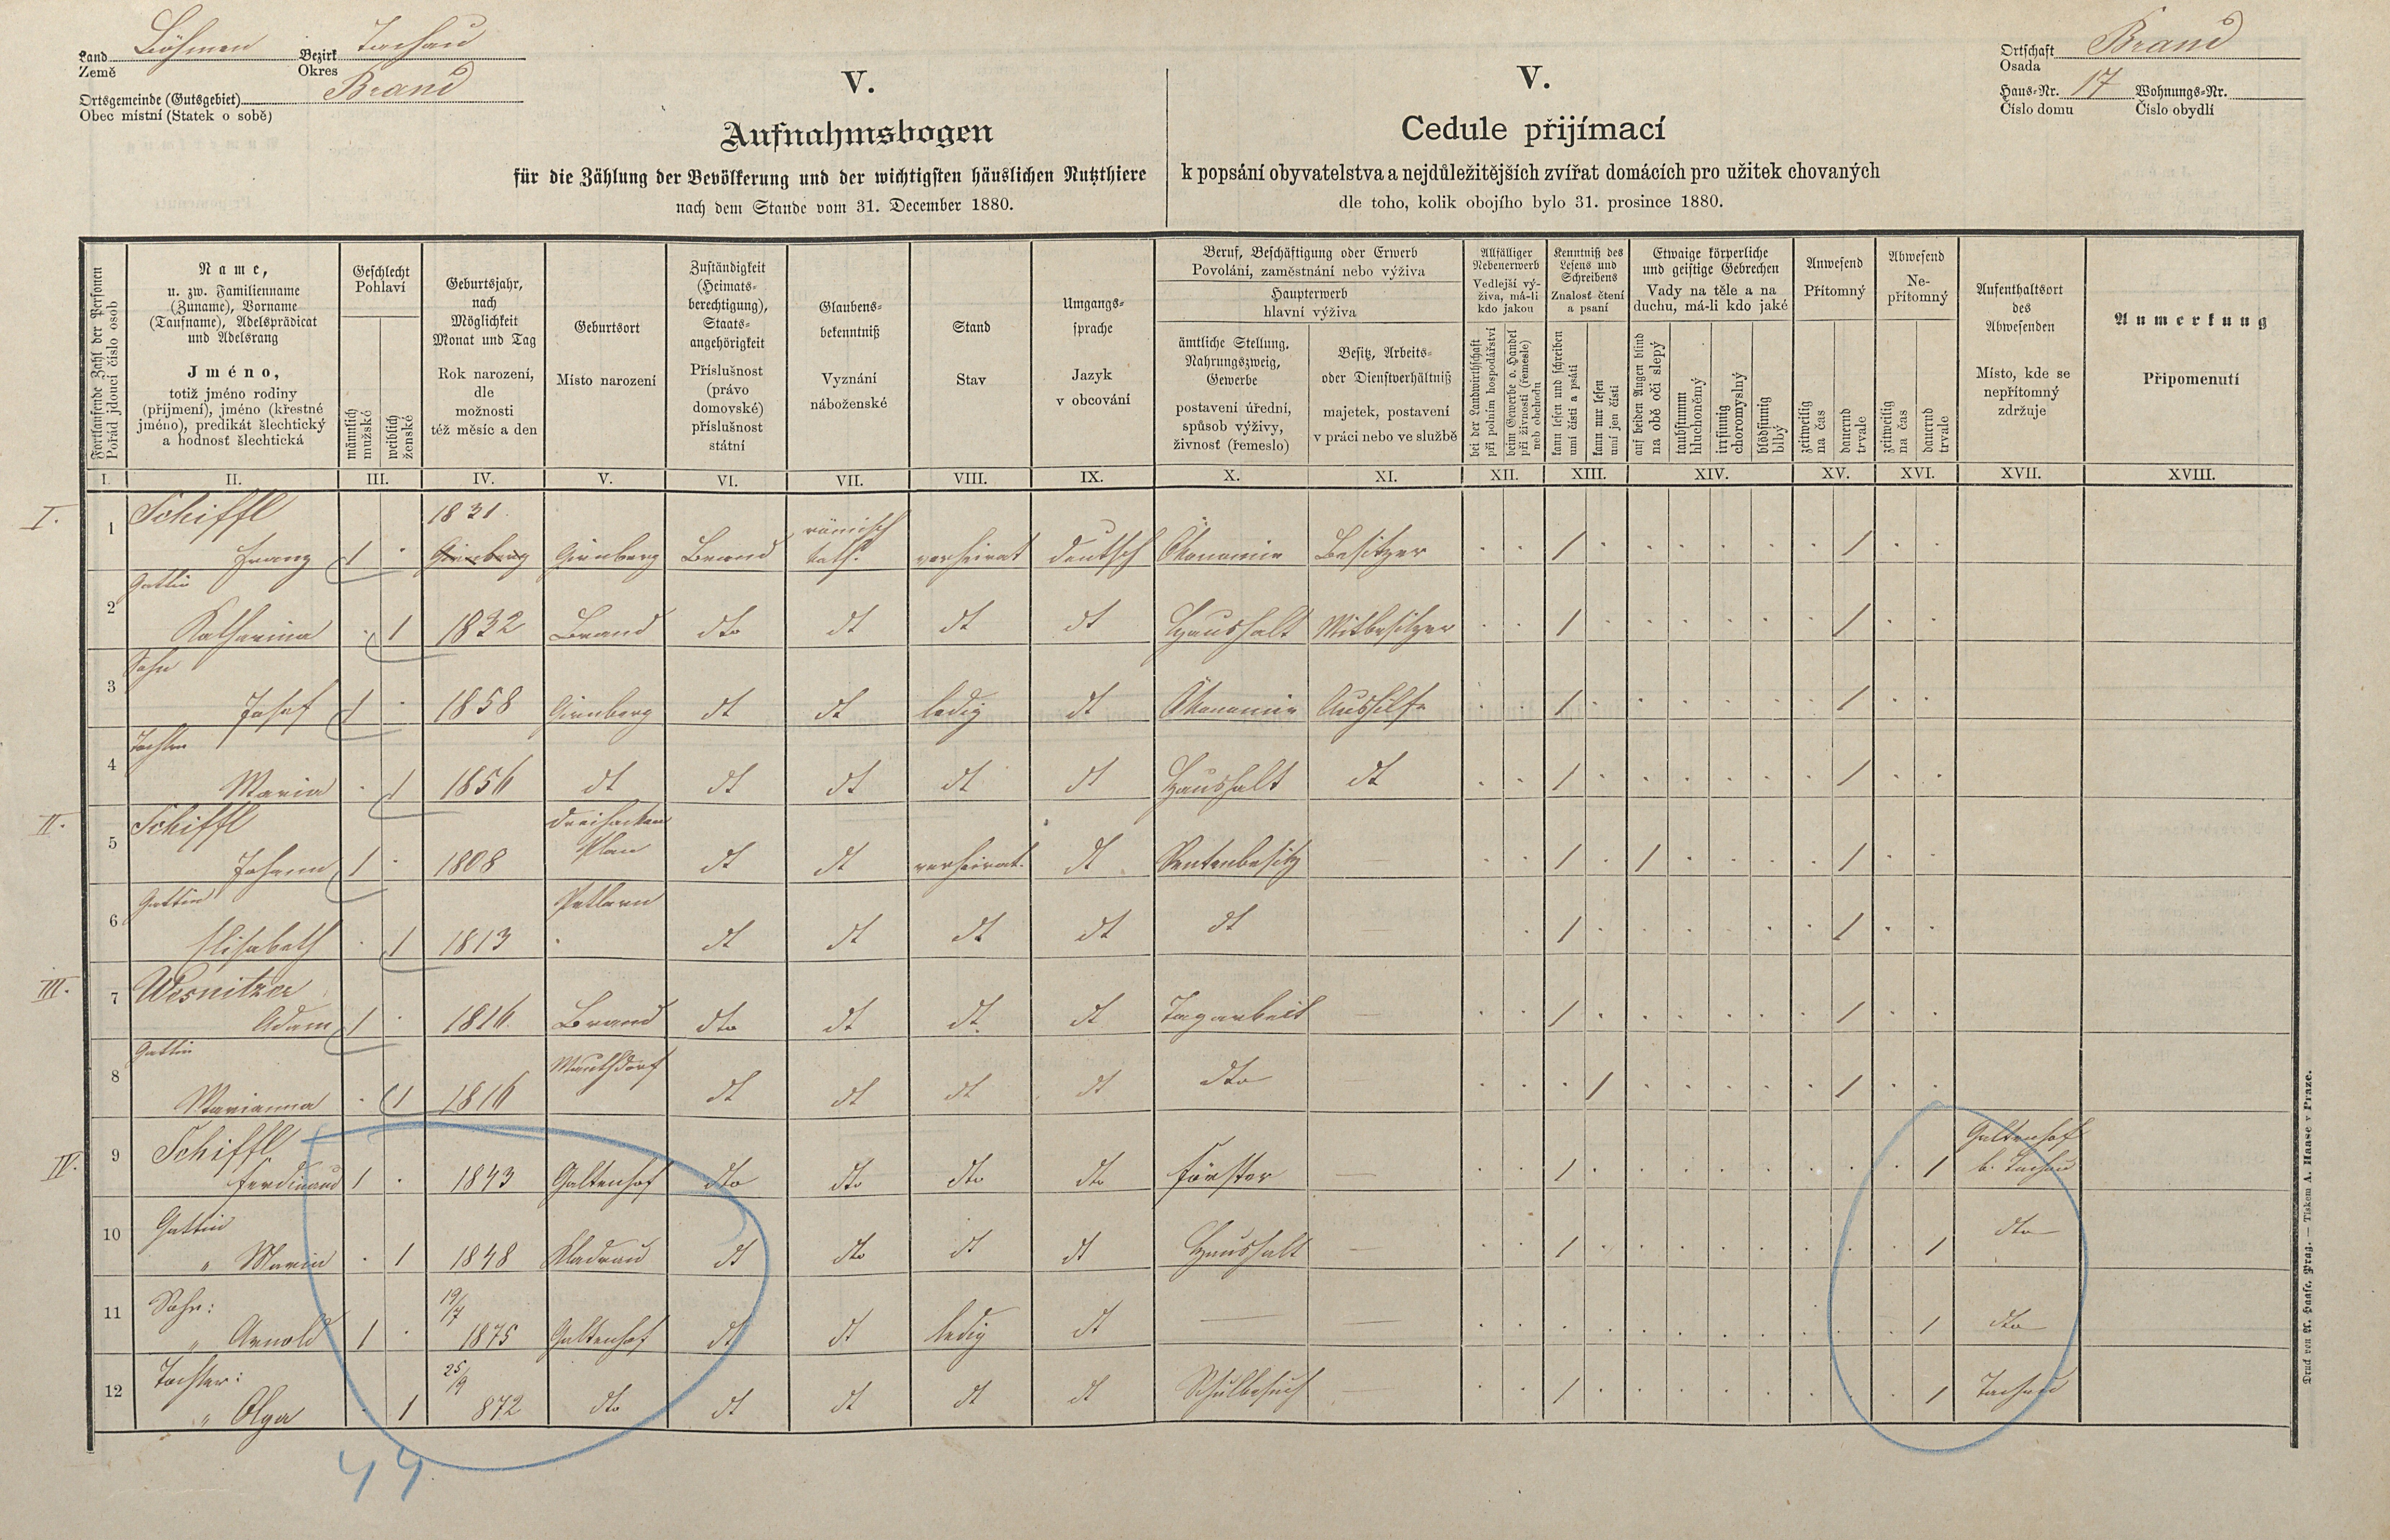 Land Böhmen Bezirk Tachau
Země Okres
Ortsgemeinde (Gutsgebiet) Brand
Obec místní (Statek o sobě)
V.
Aufnahmsbogen
für die Zählung der Bevölkerung und der wichtigsten häuslichen Nutzthiere
nach dem Stande vom 31. December 1880.
V.
Cedule přijímací
k popsání obyvatelstva a nejdůležitějších zvířat domácích pro užitek chovaných
dle toho, kolik obojího bylo 31. prosince 1880.
Ortschaft Brand
Osada
Haus-Nr. 17 Wohnungs-Nr.
Číslo domu Číslo obydlí
Fortlaufende Zahl der Personen
Pořád jdoucí číslo osob
Name,
u. zw. Familienname
(Zuname), Vorname
(Taufname), Adelsprädicat
und Adelsrang
Jméno,
totiž jméno rodiny
(přijmení), jméno (křestné
jméno), predikát šlechtický
a hodnost šlechtická
Geschlecht
Pohlaví
männlich
mužské
weiblich
ženské
Geburtsjahr,
nach
Möglichkeit
Monat und Tag
Rok narození,
dle
možnosti
též měsíc a den
Geburtsort
Místo narození
Zuständigkeit
(Heimats-
berechtigung),
Staats-
angehörigkeit
Příslušnost
(právo
domovské)
příslušnost
státní
Glaubens-
bekenntniß
Vyznání
náboženské
Stand
Stav
Umgangs-
sprache
Jazyk
v obcování
Beruf, Beschäftigung oder Erwerb
Povolání, zaměstnání nebo výživa
Haupterwerb
hlavní výživa
ämtliche Stellung,
Nahrungszweig,
Gewerbe
postavení úřední,
spůsob výživy,
živnost (řemeslo)
Besitz, Arbeits-
oder Dienstverhältniß
majetek, postavení
v práci nebo ve službě
Allfälliger
Nebenerwerb
Vedlejší vý-
živa, má-li
kdo jakou
bei der Landwirthschaft
při polním hospodářství
beim Gewerbe o. Handel
při živnosti (řemesle)
neb obchodu
Kenntniß des
Lesens und
Schreibens
Znalost čtení
a psaní
kann lesen und schreiben
umí čísti a psáti
kann nur lesen
umí jen čísti
Etwaige körperliche
und geistige Gebrechen
Vady na těle a na
duchu, má-li kdo jaké
auf beiden Augen blind
na obě oči slepý
taubstumm
hluchoněmý
irrsinnig
choromyslný
blödsinnig
blbý
Anwesend
Přítomný
zeitweilig
na čas
dauernd
trvale
Abwesend
Ne-
přítomný
zeitweilig
na čas
dauernd
trvale
Aufenthaltsort
des
Abwesenden
Místo, kde se
nepřítomný
zdržuje
Anmerkung
Připomenutí
I. II. III. IV. V. VI. VII. VIII. IX. X. XI. XII. XIII. XIV. XV. XVI. XVII. XVIII.
I. 1 Schiffl 1831 römisch
Franz 1 Girnberg Girnberg Brand kath. verheirat deutsch Ökonomie Besitzer 1 1
Gattin
2 Katharina 1 1832 Brand dto dt dt dt Haushalt Mitbesitzer 1 1
Sohn
3 Josef 1 1858 Girnberg dt dt ledig dt Ökonomie Aushilfe 1 1
Tochter
4 Maria 1 1856 dt dt dt dt dt Haushalt dt 1 1
II. Schiffl Dreihacken
5 Johann 1 1808 Plan dt dt verheirat. dt Rentenbesitz — 1 1 1
Gattin Petlarn
6 Elisabeth 1 1813 dt dt dt dt dt — 1 1
III. 7 Wesnitzer
Adam 1 1816 Brand dto dt dt dt Tagarbeit — 1 1
Gattin
8 Marianna 1 1816 Mauthdorf dt dt dt dt dto — 1 1
IV. 9 Schiffl Galtenhof
Ferdinand 1 1843 Galtenhof dto dto dto dto Förster — 1 1 b. Tachau
10 Gattin
" Maria 1 1848 Kladrau dt dto dt dt Haushalt — 1 1 dto
11 Sohn: 19/7
" Arnold 1 1875 Galtenhof dt dt ledig dt — — 1 dto
12 Tochter: 25/9
" Olga 1 872 dto dt dt dt dt Schulbesuch — 1 1 Tachau
44
Druck von A. Haase, Prag. — Tiskem A. Haase v Praze.